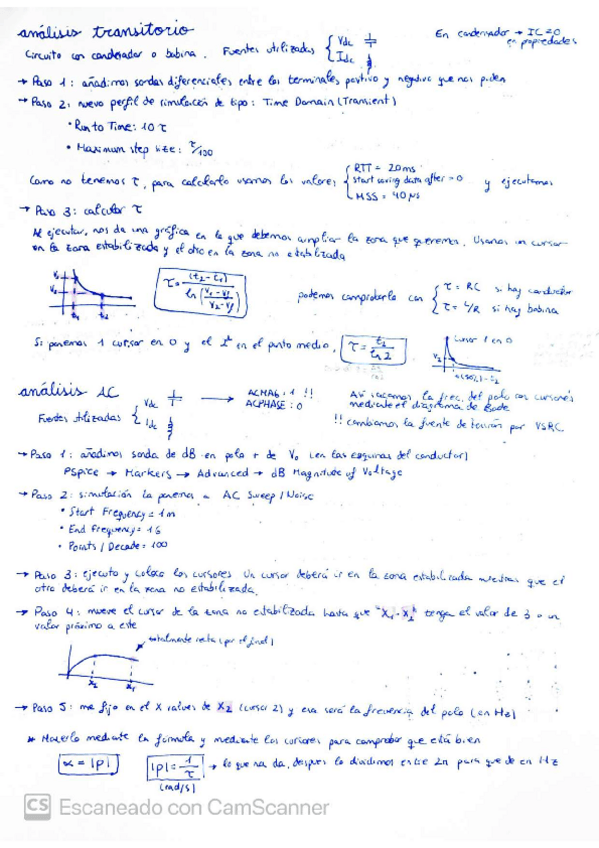 análisis transitorio
En condensador → IC=0
en propiedades
Circuito con condensador o bobina. Fuentes utilizadas { Vdc
Idc
→ Paso 1: añadimos sondas diferenciales entre los terminales positivo y negativo que nos piden
→ Paso 2: nuevo perfil de simulación de tipo: Time Domain (Transient)
• Run to Time: 10 τ
• Maximum step size: τ/100
Como no tenemos τ, para calcularlo usamos los valores { RTT = 20ms
start saving data after = 0 y ejecutamos
MSS = 40 µs
→ Paso 3: calcular τ
Al ejecutar, nos da una gráfica en la que debemos ampliar la zona que queremos. Usamos un cursor
en la zona estabilizada y el otro en la zona no estabilizada
τ = (t2 - t1) / ln((V1 - Vf) / (V2 - Vf))
podemos comprobarlo con { τ = RC si hay conductor
τ = L/R si hay bobina
Si ponemos 1 cursor en 0 y el 2º en el punto medio, τ = t2 / ln 2
cursor 1 en 0
análisis AC
Fuentes utilizadas { Vdc
Idc
→ ACMAG: 1 !!
ACPHASE: 0
Así sacamos la frec. del polo con cursores
mediante el diagrama de Bode
!! cambiamos la fuente de tensión por VSRC
→ Paso 1: añadimos sonda de dB en polo + de Vo (en las esquinas del conductor)
PSpice → Markers → Advanced → dB Magnitude of Voltage
→ Paso 2: simulación la ponemos a AC Sweep / Noise
• Start Frequency = 1m
• End Frequency = 1G
• Points / Decade = 100
→ Paso 3: ejecuto y coloco los cursores. Un cursor deberá ir en la zona estabilizada mientras que el
otro deberá ir en la zona no estabilizada.
→ Paso 4: mueve el cursor de la zona no estabilizada hasta que "X1 - X2" tenga el valor de 3 o un
valor próximo a este
totalmente recta (por el final)
X2 X1
→ Paso 5: me fijo en el X values de X2 (cursor 2) y esa será la frecuencia del polo (en Hz)
* Hacerlo mediante la fórmula y mediante los cursores para comprobar que está bien
α = |p| |p| = 1/τ → lo que na da, despues lo dividimos entre 2π para que de en Hz
(rad/s)
CS Escaneado con CamScanner